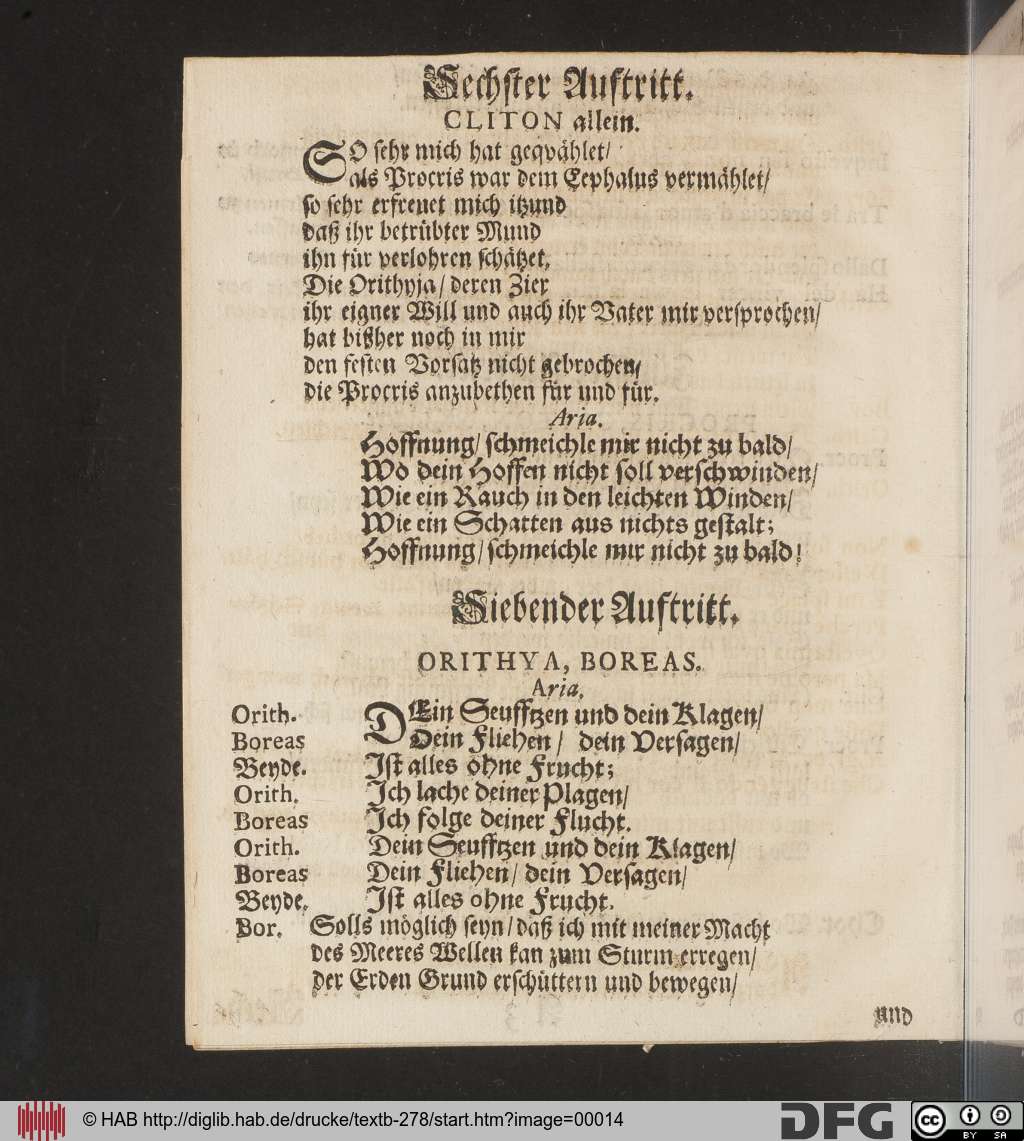 Sechster Auftritt.
CLITON allein.
SO sehr mich hat geqvählet/
als Procris war dem Cephalus vermählet/
so sehr erfreuet mich itzund
daß ihr betrübter Mund
ihn für verlohren schätzet.
Die Orithyja/ deren Zier
ihr eigner Will und auch ihr Vater mir versprochen/
hat bißher noch in mir
den festen Vorsatz nicht gebrochen/
die Procris anzubethen für und für.
Aria.
Hoffnung/ schmeichle mir nicht zu bald/
Wo dein Hoffen nicht soll verschwinden/
Wie ein Rauch in den leichten Winden/
Wie ein Schatten aus nichts gestalt;
Hoffnung/ schmeichle mir nicht zu bald!
Siebender Auftritt.
ORITHYA, BOREAS.
Aria.
Orith. DEin Seufftzen und dein Klagen/
Boreas Dein Fliehen/ dein Versagen/
Beyde. Ist alles ohne Frucht;
Orith. Ich lache deiner Plagen/
Boreas Ich folge deiner Flucht.
Orith. Dein Seufftzen und dein Klagen/
Boreas Dein Fliehen/ dein Versagen/
Beyde. Ist alles ohne Frucht.
Bor. Solls möglich seyn/ daß ich mit meiner Macht
des Meeres Wellen kan zum Sturm erregen/
der Erden Grund erschüttern und bewegen/
und
© HAB http://diglib.hab.de/drucke/textb-278/start.htm?image=00014
DFG
cc BY SA